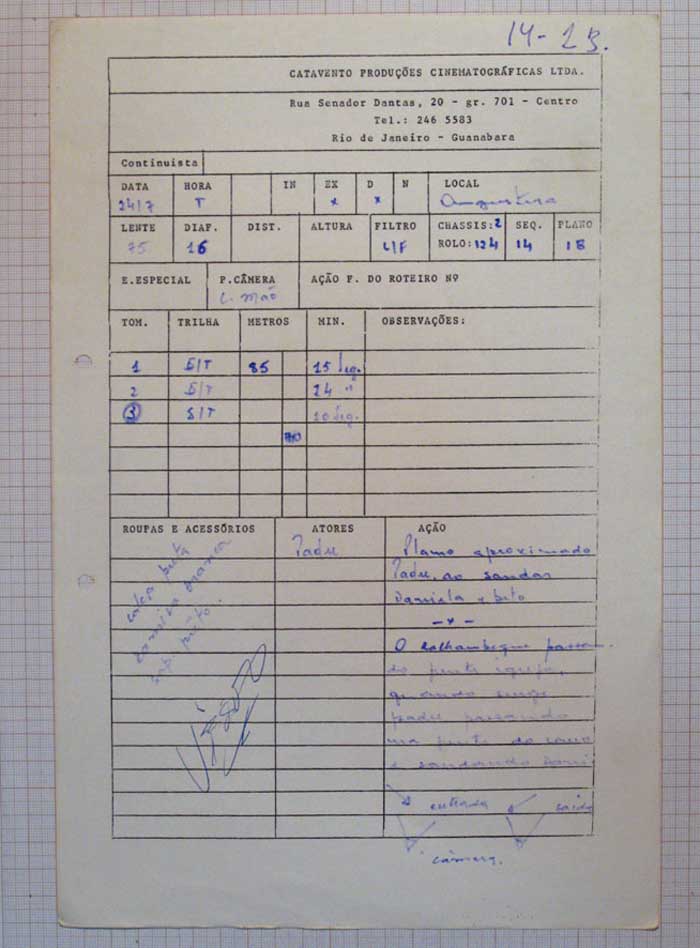 14-1B.
CATAVENTO PRODUÇÕES CINEMATOGRÁFICAS LTDA.
Rua Senador Dantas, 20 - gr. 701 - Centro
Tel.: 246 5583
Rio de Janeiro - Guanabara
Continuista
DATA HORA IN EX D N LOCAL
24/7 T x x
LENTE DIAF. DIST. ALTURA FILTRO CHASSIS: 2 SEQ. PLANO
75 16 ROLO: 124 14 1B
E.ESPECIAL P.CÂMERA AÇÃO F. DO ROTEIRO Nº
C. mão
TOM. TRILHA METROS MIN. OBSERVAÇÕES:
1 S/T 85 15 seg.
2 S/T 24 "
3 S/T 10 seg.
ROUPAS E ACESSÓRIOS ATORES AÇÃO
calça preta
camisa branca
sap. preto.
Padre
Plano aproximado
Padre, ao saudar
Daniela e beto
-x-
O calhambeque passan-
do frente igreja,
quando surge
padre passando
na frente do carro
e saudando
entrada saída
câmera.